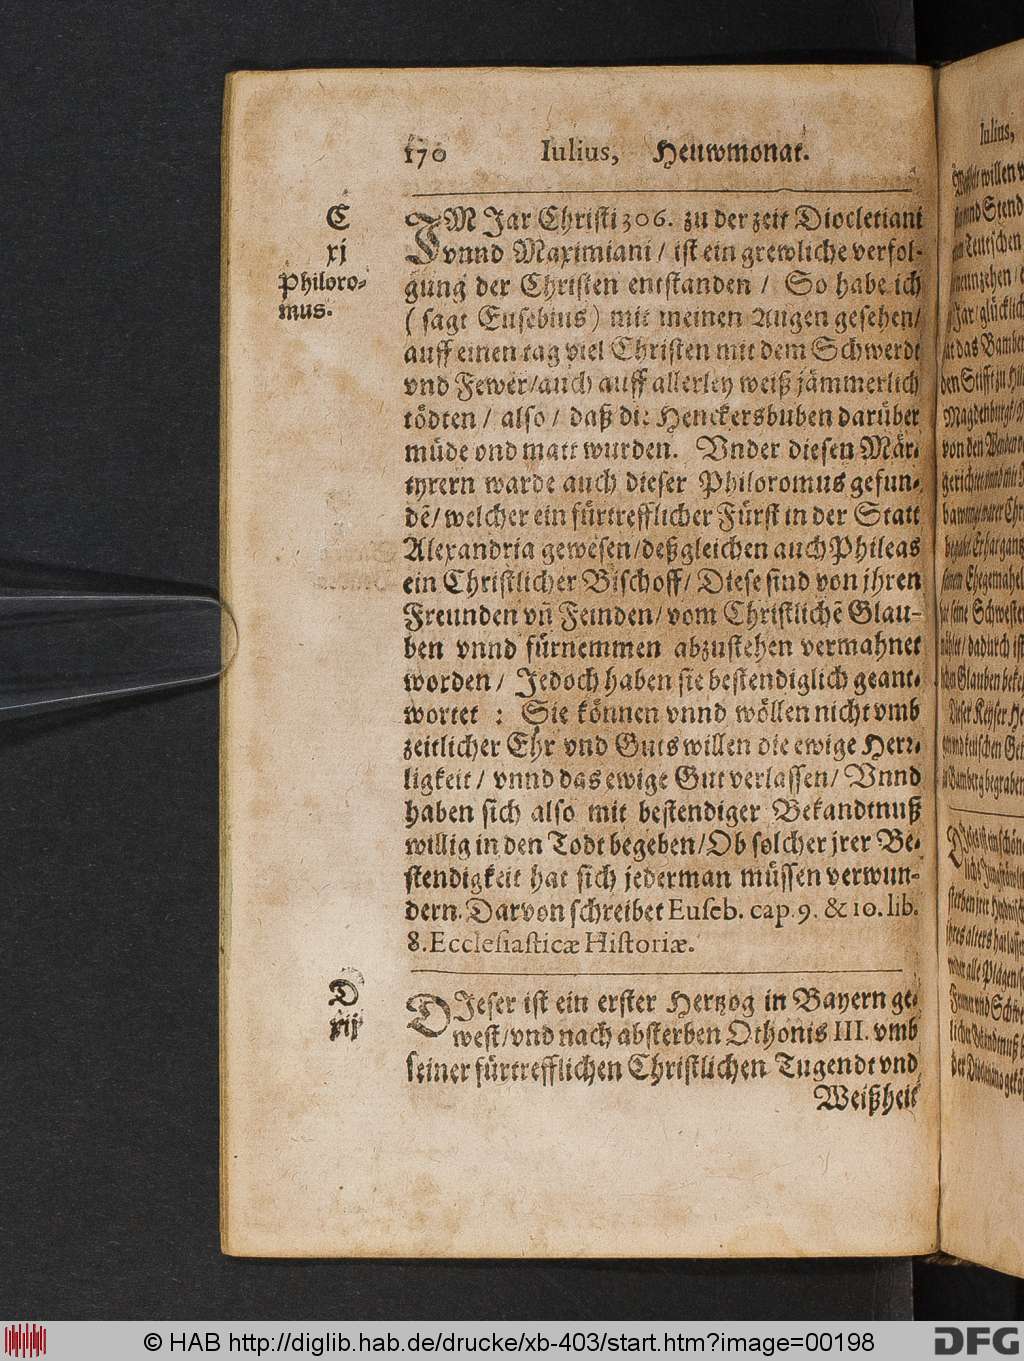 170 Iulius, Heuwmonat.
C
xj
Philoro-
mus.
IM Jar Christi 306. zu der zeit Diocletiani
vnnd Maximiani / ist ein grewliche verfol-
gung der Christen entstanden / So habe ich
( sagt Eusebius ) mit meinen Augen gesehen/
auff einen tag viel Christen mit dem Schwerdt
vnd Fewer/auch auff allerley weiß jämmerlich
tödten / also / daß die Henckersbuben darüber
müde ond matt wurden. Vnder diesen Mär-
tyrern warde auch dieser Philoromus gefun-
dē/ welcher ein fürtrefflicher Fürst in der Statt
Alexandria gewesen/deßgleichen auch Phileas
ein Christlicher Bischoff/ Diese sind von jhren
Freunden vñ Feinden/ vom Christlichē Glau-
ben vnnd fürnemmen abzustehen vermahnet
worden / Jedoch haben sie bestendiglich geant-
wortet : Sie können vnnd wöllen nicht vmb
zeitlicher Ehr vnd Guts willen die ewige Herr-
ligkeit / vnnd das ewige Gut verlassen/ Vnnd
haben sich also mit bestendiger Bekandtnuß
willig in den Todt begeben/Ob solcher jrer Be-
stendigkeit hat sich jederman müssen verwun-
dern. Darvon schreibet Euseb. cap. 9. & 10. lib.
8. Ecclesiasticæ Historiæ.
D
xij
DIeser ist ein erster Hertzog in Bayern ge-
west/vnd nach absterben Othonis III. vmb
seiner fürtrefflichen Christlichen Tugendt vnd
Weißheit
Iulius,
willen
vnd Stend
Teutschen
Jar/ glücklich
hat das Bamber
den Stifft zu
Magdenburg/
von den
seine Schwester
/ dadurch ist
Glauben beke
Dieser Keyser He
vnd keuschen
Bamberg begraben
© HAB http://diglib.hab.de/drucke/xb-403/start.htm?image=00198
DFG